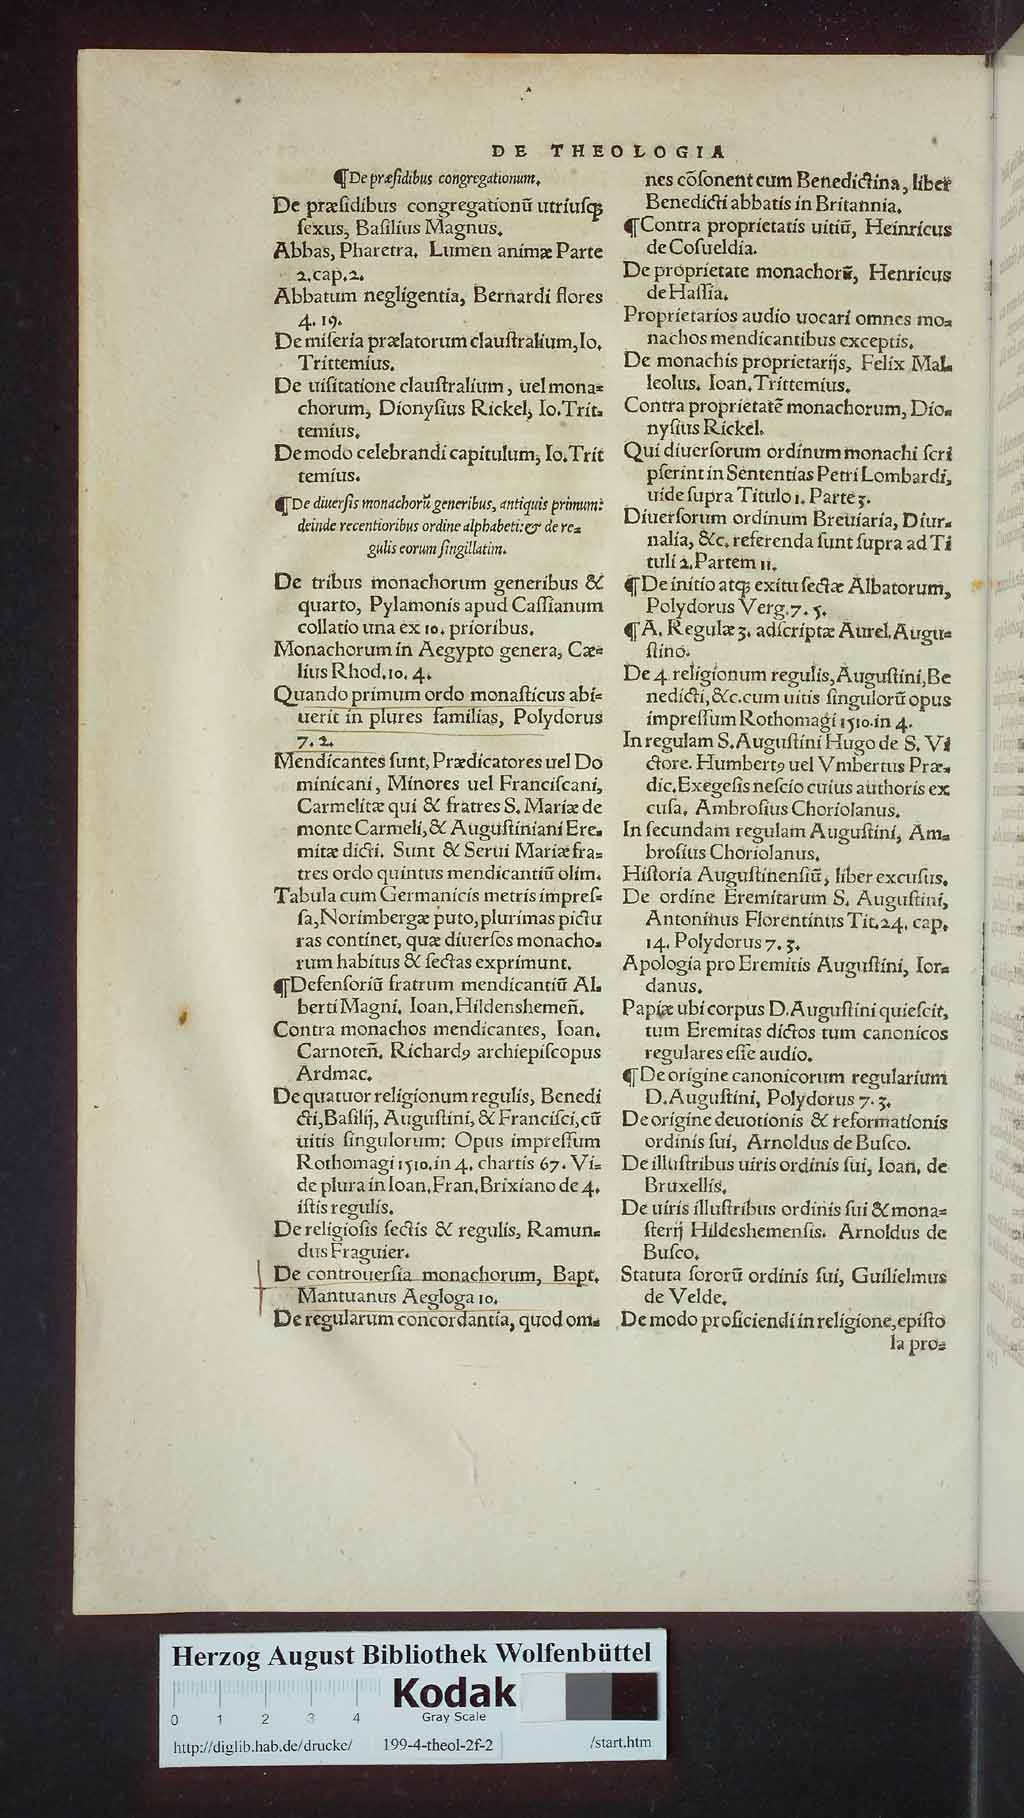 DE THEOLOGIA
¶De præsidibus congregationum.
De præsidibus congregationū utriusq;
sexus, Basilius Magnus.
Abbas, Pharetra. Lumen animæ Parte
2.cap.2.
Abbatum negligentia, Bernardi flores
4. 19.
De miseria prælatorum claustralium, Io.
Trittemius.
De uisitatione claustralium, uel mona=
chorum, Dionysius Rickel, Io. Trit=
temius.
De modo celebrandi capitulum, Io. Trit
temius.
¶De diuersis monachorū generibus, antiquis primum:
deinde recentioribus ordine alphabeti: & de re=
gulis eorum singillatim.
De tribus monachorum generibus &
quarto, Pylamonis apud Cassianum
collatio una ex 10. prioribus.
Monachorum in Aegypto genera, Cæ=
lius Rhod. 10. 4.
Quando primum ordo monasticus abi=
uerit in plures familias, Polydorus
7. 2.
Mendicantes sunt, Prædicatores uel Do
minicani, Minores uel Franciscani,
Carmelitæ qui & fratres S. Mariæ de
monte Carmeli, & Augustiniani Ere=
mitæ dicti. Sunt & Serui Mariæ fra=
tres ordo quintus mendicantiū olim.
Tabula cum Germanicis metris impres=
sa, Norimbergæ puto, plurimas pictu
ras continet, quæ diuersos monacho=
rum habitus & sectas exprimunt.
¶Defensoriū fratrum mendicantiū Al=
berti Magni. Ioan. Hildenshemeñ.
Contra monachos mendicantes, Ioan.
Carnoteñ. Richardꝰ archiepiscopus
Ardmac.
De quatuor religionum regulis, Benedi
cti, Basilij, Augustini, & Francisci, cū
uitis singulorum: Opus impressum
Rothomagi 1510. in 4. chartis 67. Vi=
de plura in Ioan. Fran. Brixiano de 4.
istis regulis.
De religiosis sectis & regulis, Ramun=
dus Fraguier.
De controuersia monachorum, Bapt.
Mantuanus Aegloga 10.
De regularum concordantia, quod om=
nes cōsonent cum Benedictina, liber
Benedicti abbatis in Britannia.
¶Contra proprietatis uitiū, Heinricus
de Cosueldia.
De proprietate monachorū, Henricus
de Hassia.
Proprietarios audio uocari omnes mo=
nachos mendicantibus exceptis.
De monachis proprietarijs, Felix Mal=
leolus. Ioan. Trittemius.
Contra proprietatē monachorum, Dio=
nysius Rickel.
Qui diuersorum ordinum monachi scri
pserint in Sententias Petri Lombardi,
uide supra Titulo 1. Parte 3.
Diuersorum ordinum Breuiaria, Diur=
nalia, &c. referenda sunt supra ad Ti
tuli 2. Partem 11.
¶De initio atq; exitu sectæ Albatorum,
Polydorus Verg. 7. 5.
¶A. Regulæ 3. adscriptæ Aurel. Augu=
stino.
De 4 religionum regulis, Augustini, Be
nedicti, &c. cum uitis singulorū opus
impressum Rothomagi 1510. in 4.
In regulam S. Augustini Hugo de S. Vi
ctore. Humbertꝰ uel Vmbertus Præ=
dic. Exegesis nescio cuius authoris ex
cusa. Ambrosius Choriolanus.
In secundam regulam Augustini, Am=
brosius Choriolanus.
Historia Augustinensiū, liber excusus.
De ordine Eremitarum S. Augustini,
Antoninus Florentinus Tit. 24. cap.
14. Polydorus 7. 3.
Apologia pro Eremitis Augustini, Ior=
danus.
Papiæ ubi corpus D. Augustini quiescit,
tum Eremitas dictos tum canonicos
regulares esse audio.
¶De origine canonicorum regularium
D. Augustini, Polydorus 7. 3.
De origine deuotionis & reformationis
ordinis sui, Arnoldus de Busco.
De illustribus uiris ordinis sui, Ioan. de
Bruxellis.
De uiris illustribus ordinis sui & mona=
sterij Hildeshemensis. Arnoldus de
Busco.
Statuta sororū ordinis sui, Guilielmus
de Velde.
De modo proficiendi in religione, episto
la pro=
Herzog August Bibliothek Wolfenbüttel
Kodak
Gray Scale
0 1 2 3 4
http://diglib.hab.de/drucke/ 199-4-theol-2f-2 /start.htm